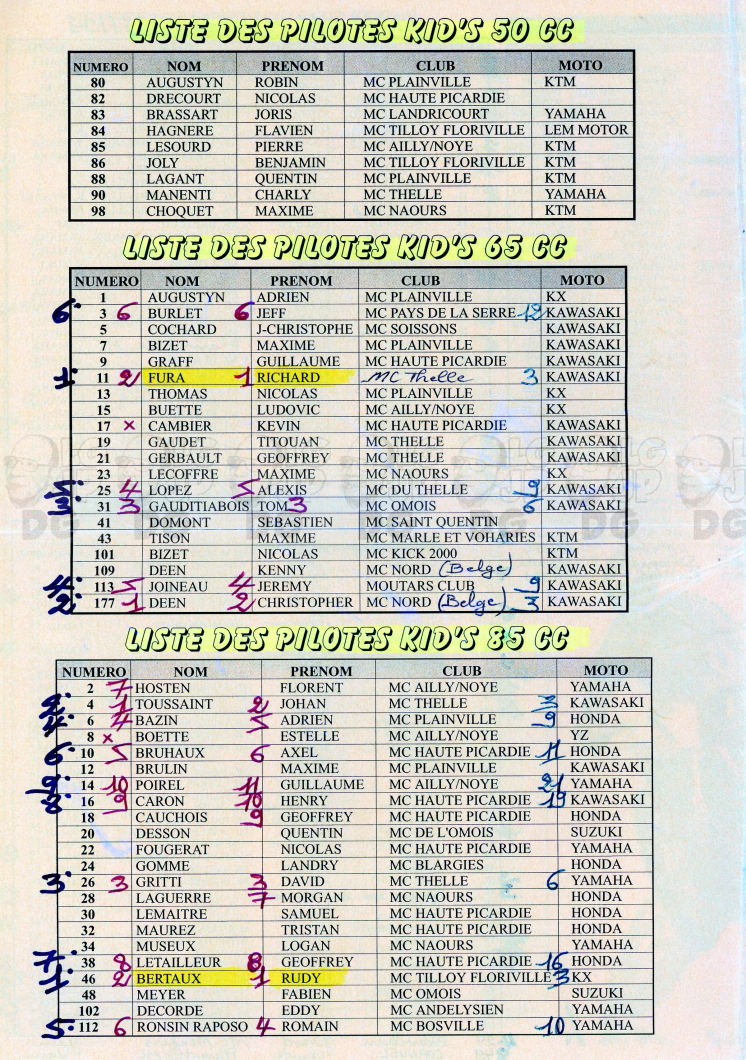 LISTE DES PILOTES KID'S 50 CC
NUMERO NOM PRENOM CLUB MOTO
80 AUGUSTYN ROBIN MC PLAINVILLE KTM
82 DRECOURT NICOLAS MC HAUTE PICARDIE
83 BRASSART JORIS MC LANDRICOURT YAMAHA
84 HAGNERE FLAVIEN MC TILLOY FLORIVILLE LEM MOTOR
85 LESOURD PIERRE MC AILLY/NOYE KTM
86 JOLY BENJAMIN MC TILLOY FLORIVILLE KTM
88 LAGANT QUENTIN MC PLAINVILLE KTM
90 MANENTI CHARLY MC THELLE YAMAHA
98 CHOQUET MAXIME MC NAOURS KTM
LISTE DES PILOTES KID'S 65 CC
NUMERO NOM PRENOM CLUB MOTO
1 AUGUSTYN ADRIEN MC PLAINVILLE KX
6. 3 6 BURLET 6 JEFF MC PAYS DE LA SERRE 12 KAWASAKI
5 COCHARD J-CHRISTOPHE MC SOISSONS KAWASAKI
7 BIZET MAXIME MC PLAINVILLE KAWASAKI
9 GRAFF GUILLAUME MC HAUTE PICARDIE KAWASAKI
1. 11 2 FURA 1 RICHARD MC Thelle 3 KAWASAKI
13 THOMAS NICOLAS MC PLAINVILLE KX
15 BUETTE LUDOVIC MC AILLY/NOYE KX
17 x CAMBIER KEVIN MC HAUTE PICARDIE KAWASAKI
19 GAUDET TITOUAN MC THELLE KAWASAKI
21 GERBAULT GEOFFREY MC THELLE KAWASAKI
23 LECOFFRE MAXIME MC NAOURS KX
5. 25 4 LOPEZ 5 ALEXIS MC DU THELLE 9 KAWASAKI
3. 31 3 GAUDITIABOIS TOM 3 MC OMOIS 6 KAWASAKI
41 DOMONT SEBASTIEN MC SAINT QUENTIN
43 TISON MAXIME MC MARLE ET VOHARIES KTM
101 BIZET NICOLAS MC KICK 2000 KTM
109 DEEN KENNY MC NORD (Belge) KAWASAKI
4. 113 5 JOINEAU 4 JEREMY MOUTARS CLUB 9 KAWASAKI
2. 177 1 DEEN 2 CHRISTOPHER MC NORD (Belge) 3 KAWASAKI
LISTE DES PILOTES KID'S 85 CC
NUMERO NOM PRENOM CLUB MOTO
2 7 HOSTEN FLORENT MC AILLY/NOYE YAMAHA
2. 4 1 TOUSSAINT 2 JOHAN MC THELLE 3 KAWASAKI
4. 6 4 BAZIN 5 ADRIEN MC PLAINVILLE 9 HONDA
8 x BOETTE ESTELLE MC AILLY/NOYE YZ
6. 10 5 BRUHAUX 6 AXEL MC HAUTE PICARDIE 11 HONDA
12 BRULIN MAXIME MC PLAINVILLE KAWASAKI
9. 14 10 POIREL 11 GUILLAUME MC AILLY/NOYE 21 YAMAHA
8. 16 9 CARON 10 HENRY MC HAUTE PICARDIE 19 KAWASAKI
18 CAUCHOIS 9 GEOFFREY MC HAUTE PICARDIE HONDA
20 DESSON QUENTIN MC DE L'OMOIS SUZUKI
22 FOUGERAT NICOLAS MC HAUTE PICARDIE YAMAHA
24 GOMME LANDRY MC BLARGIES HONDA
3. 26 3 GRITTI 3 DAVID MC THELLE 6 YAMAHA
28 LAGUERRE 7 MORGAN MC NAOURS HONDA
30 LEMAITRE SAMUEL MC HAUTE PICARDIE HONDA
32 MAUREZ TRISTAN MC HAUTE PICARDIE HONDA
34 MUSEUX LOGAN MC NAOURS YAMAHA
7. 38 8 LETAILLEUR 8 GEOFFREY MC HAUTE PICARDIE 16 HONDA
1. 46 2 BERTAUX 1 RUDY MC TILLOY FLORIVILLE 3 KX
48 MEYER FABIEN MC OMOIS SUZUKI
102 DECORDE EDDY MC ANDELYSIEN YAMAHA
5. 112 6 RONSIN RAPOSO 4 ROMAIN MC BOSVILLE 10 YAMAHA